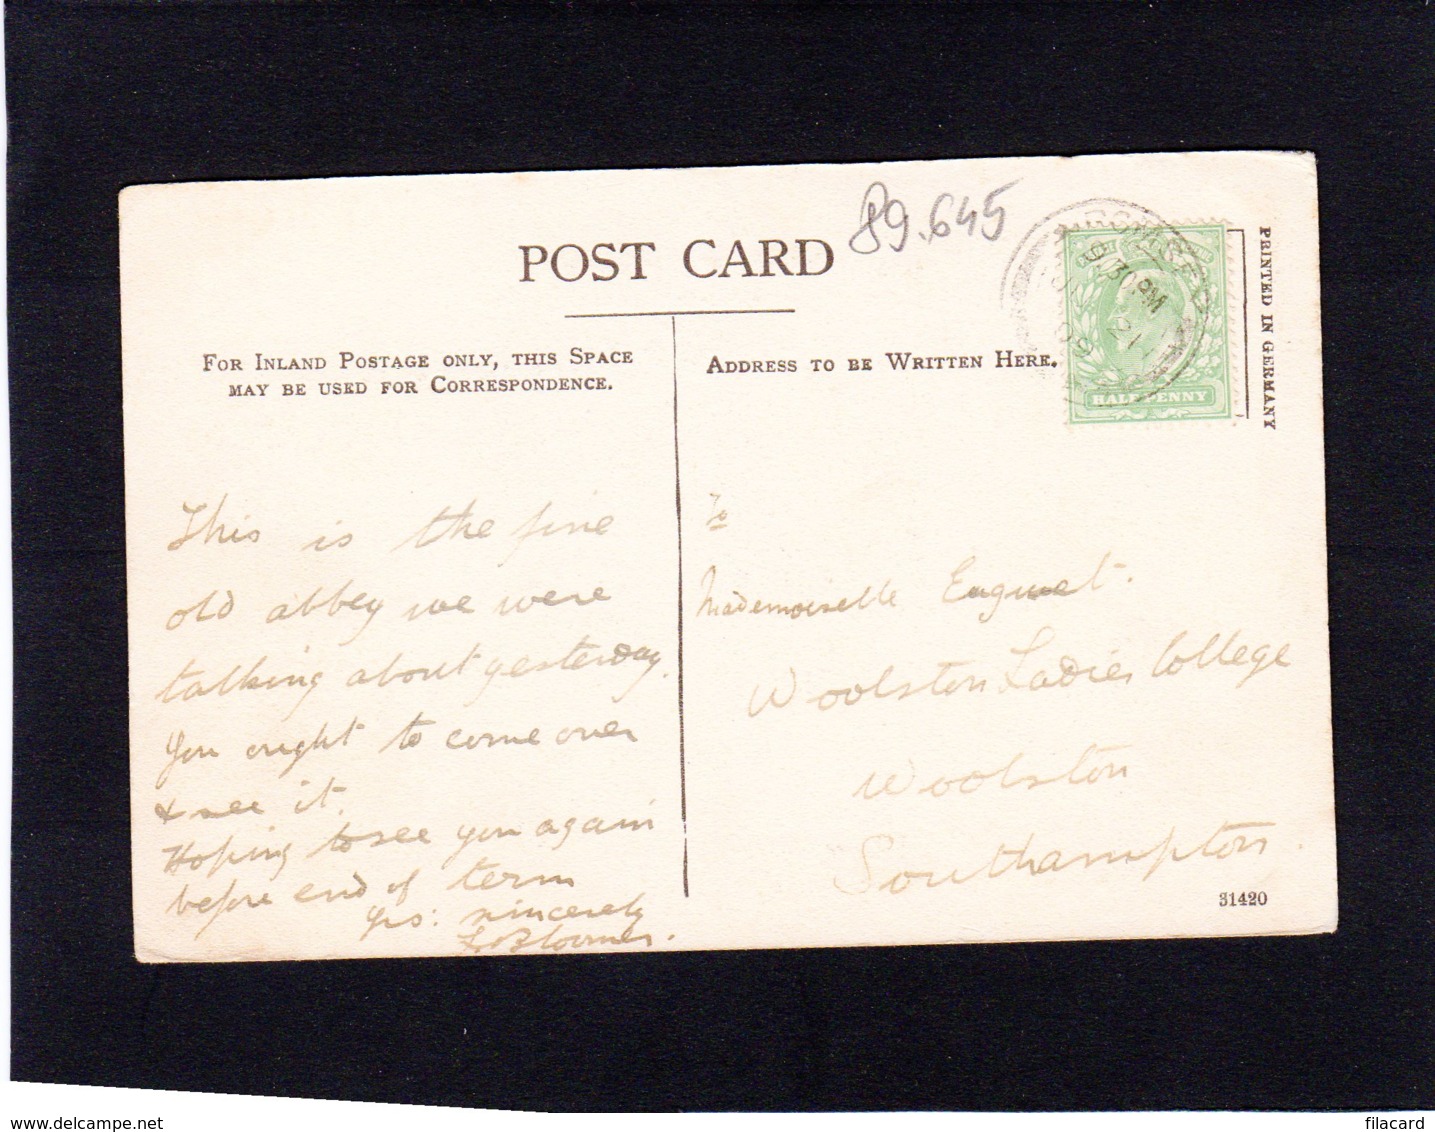 89.645
POST CARD
FOR INLAND POSTAGE ONLY, THIS SPACE
MAY BE USED FOR CORRESPONDENCE.
ADDRESS TO BE WRITTEN HERE.
PRINTED IN GERMANY
9.30PM
21
09
HALFPENNY
This is the fine
old abbey we were
talking about yesterday.
You ought to come over
& see it.
Hoping to see you again
before end of term
Yrs: sincerely
To
Mademoiselle
Woolston Ladies College
Woolston
Southampton.
31420
delcampe.net
filacard